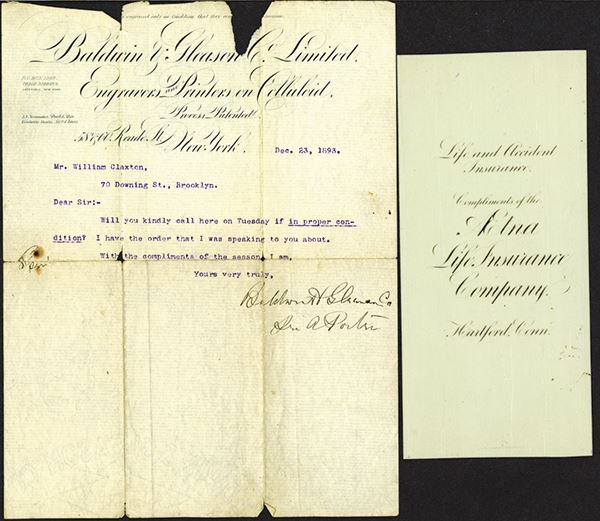 Baldwin & Gleason Co. Limited.
Engravers and Printers on Celluloid.
Process Patented
58 & 60 Reade St.
New York. Dec. 23, 1893.
Mr. William Claxton,
70 Downing St., Brooklyn.
Dear Sir:-
Will you kindly call here on Tuesday if in proper con-
dition? I have the order that I was speaking to you about.
With the compliments of the season, I am,
Yours very truly,
Baldwin & Gleason Co
A Porter
Life and Accident
Insurance.
Compliments of the
Ætna
Life Insurance
Company.
Hartford, Conn.